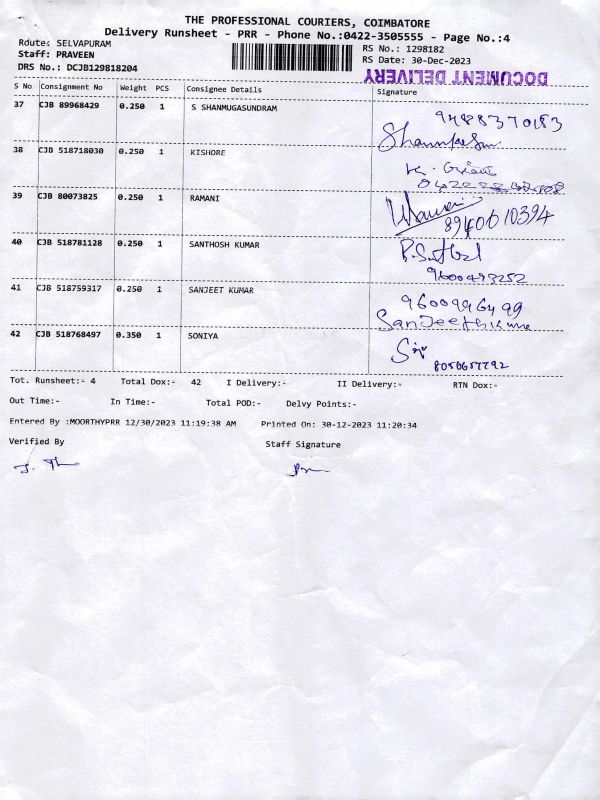 THE PROFESSIONAL COURIERS, COIMBATORE
Delivery Runsheet - PRR - Phone No.:0422-3505555 - Page No.:4
Rdute: SELVAPURAM
RS No.: 1298182
Staff: PRAVEEN
RS Date: 30-Dec-2023
DRS No.: DCJB129818204
DOCUMENT DELIVERY
S No Consignment No Weight PCS Consignee Details Signature
37 CJB 89968429 0.250 1 S SHANMUGASUNDRAM
9488370183
38 CJB 518718030 0.250 1 KISHORE
39 CJB 80073825 0.250 1 RAMANI
8940010394
40 CJB 518781128 0.250 1 SANTHOSH KUMAR
9600493252
41 CJB 518759317 0.250 1 SANJEET KUMAR
9600996499
42 CJB 518768497 0.350 1 SONIYA
8050657792
Tot. Runsheet:- 4 Total Dox:- 42 I Delivery:- II Delivery:- RTN Dox:-
Out Time:- In Time:- Total POD:- Delvy Points:-
Entered By :MOORTHYPRR 12/30/2023 11:19:38 AM Printed On: 30-12-2023 11:20:34
Verified By Staff Signature